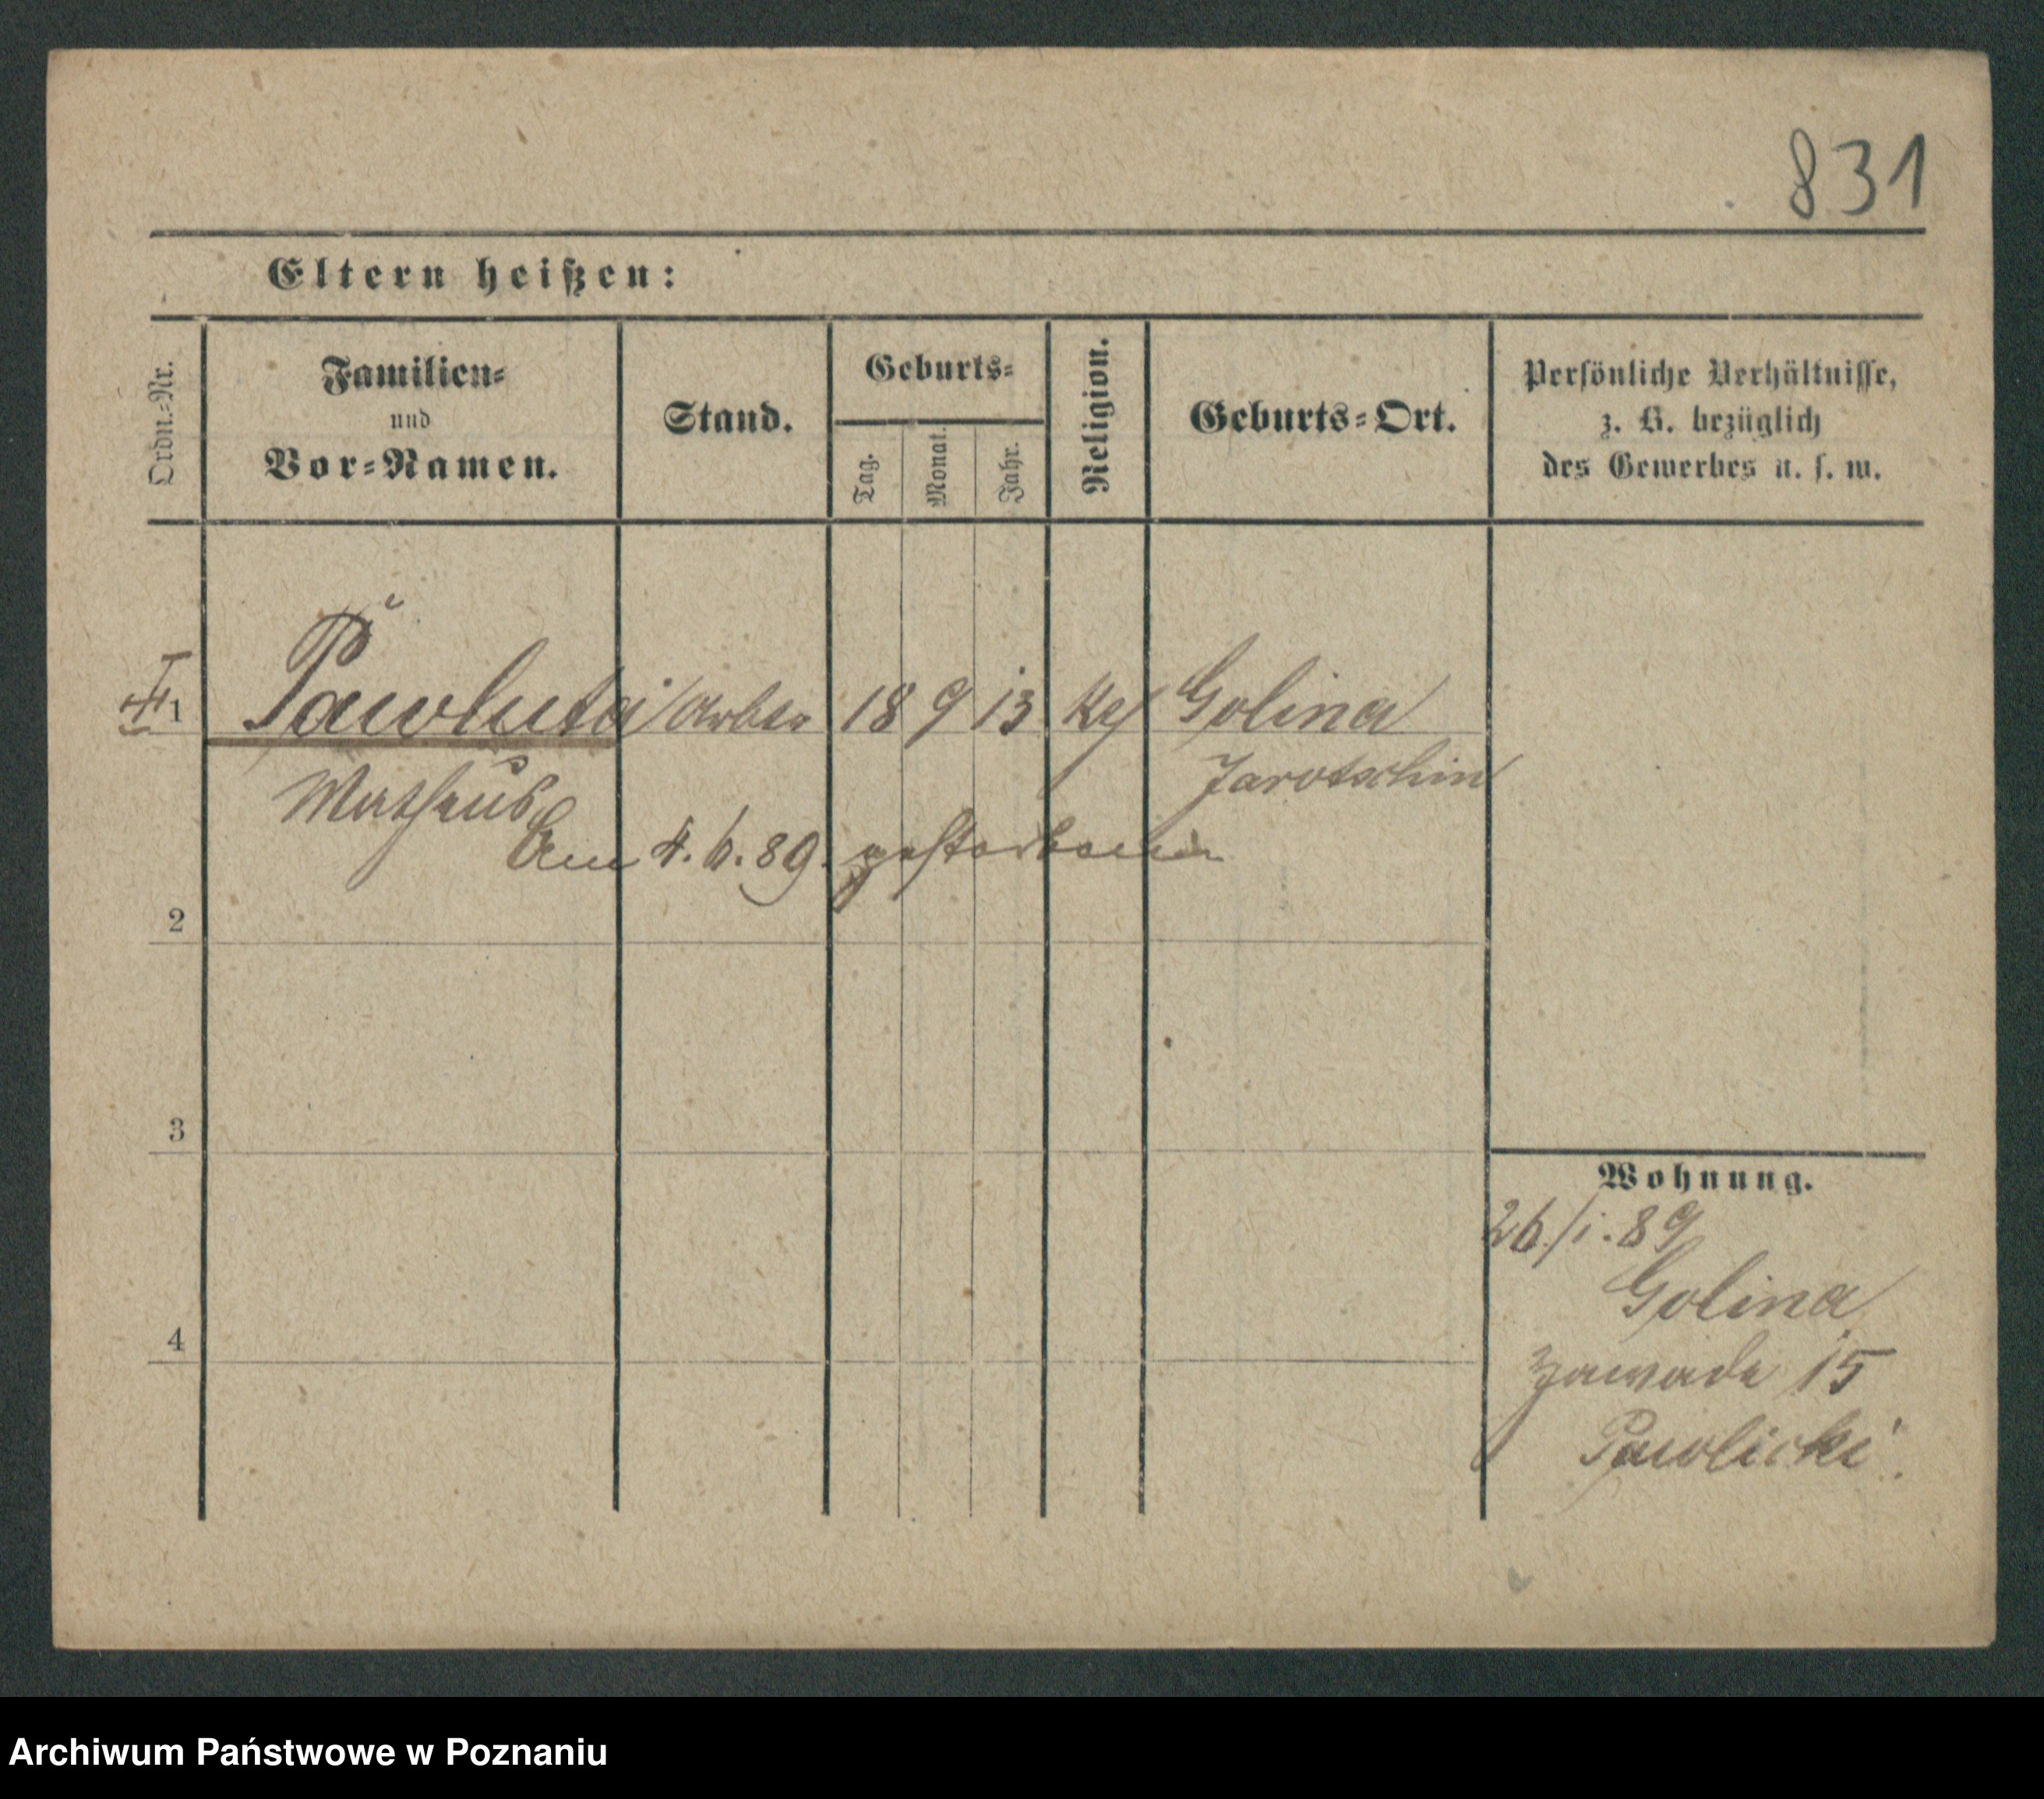 831
Eltern heißen:
Ordn.-Nr.
Familien-
und
Vor-Namen.
Stand.
Geburts-
Tag.
Monat.
Jahr.
Religion.
Geburts-Ort.
Persönliche Verhältnisse,
z. B. bezüglich
des Gewerbes u. s. w.
1 Pawluta Arbtr 18 9 13 Golina
Mathäus Jarotschin
Am 4. 6. 89. gestorben
2
3
4
Wohnung.
26/1. 89
Golina
Zawade 15
Pawlicki.
Archiwum Państwowe w Poznaniu